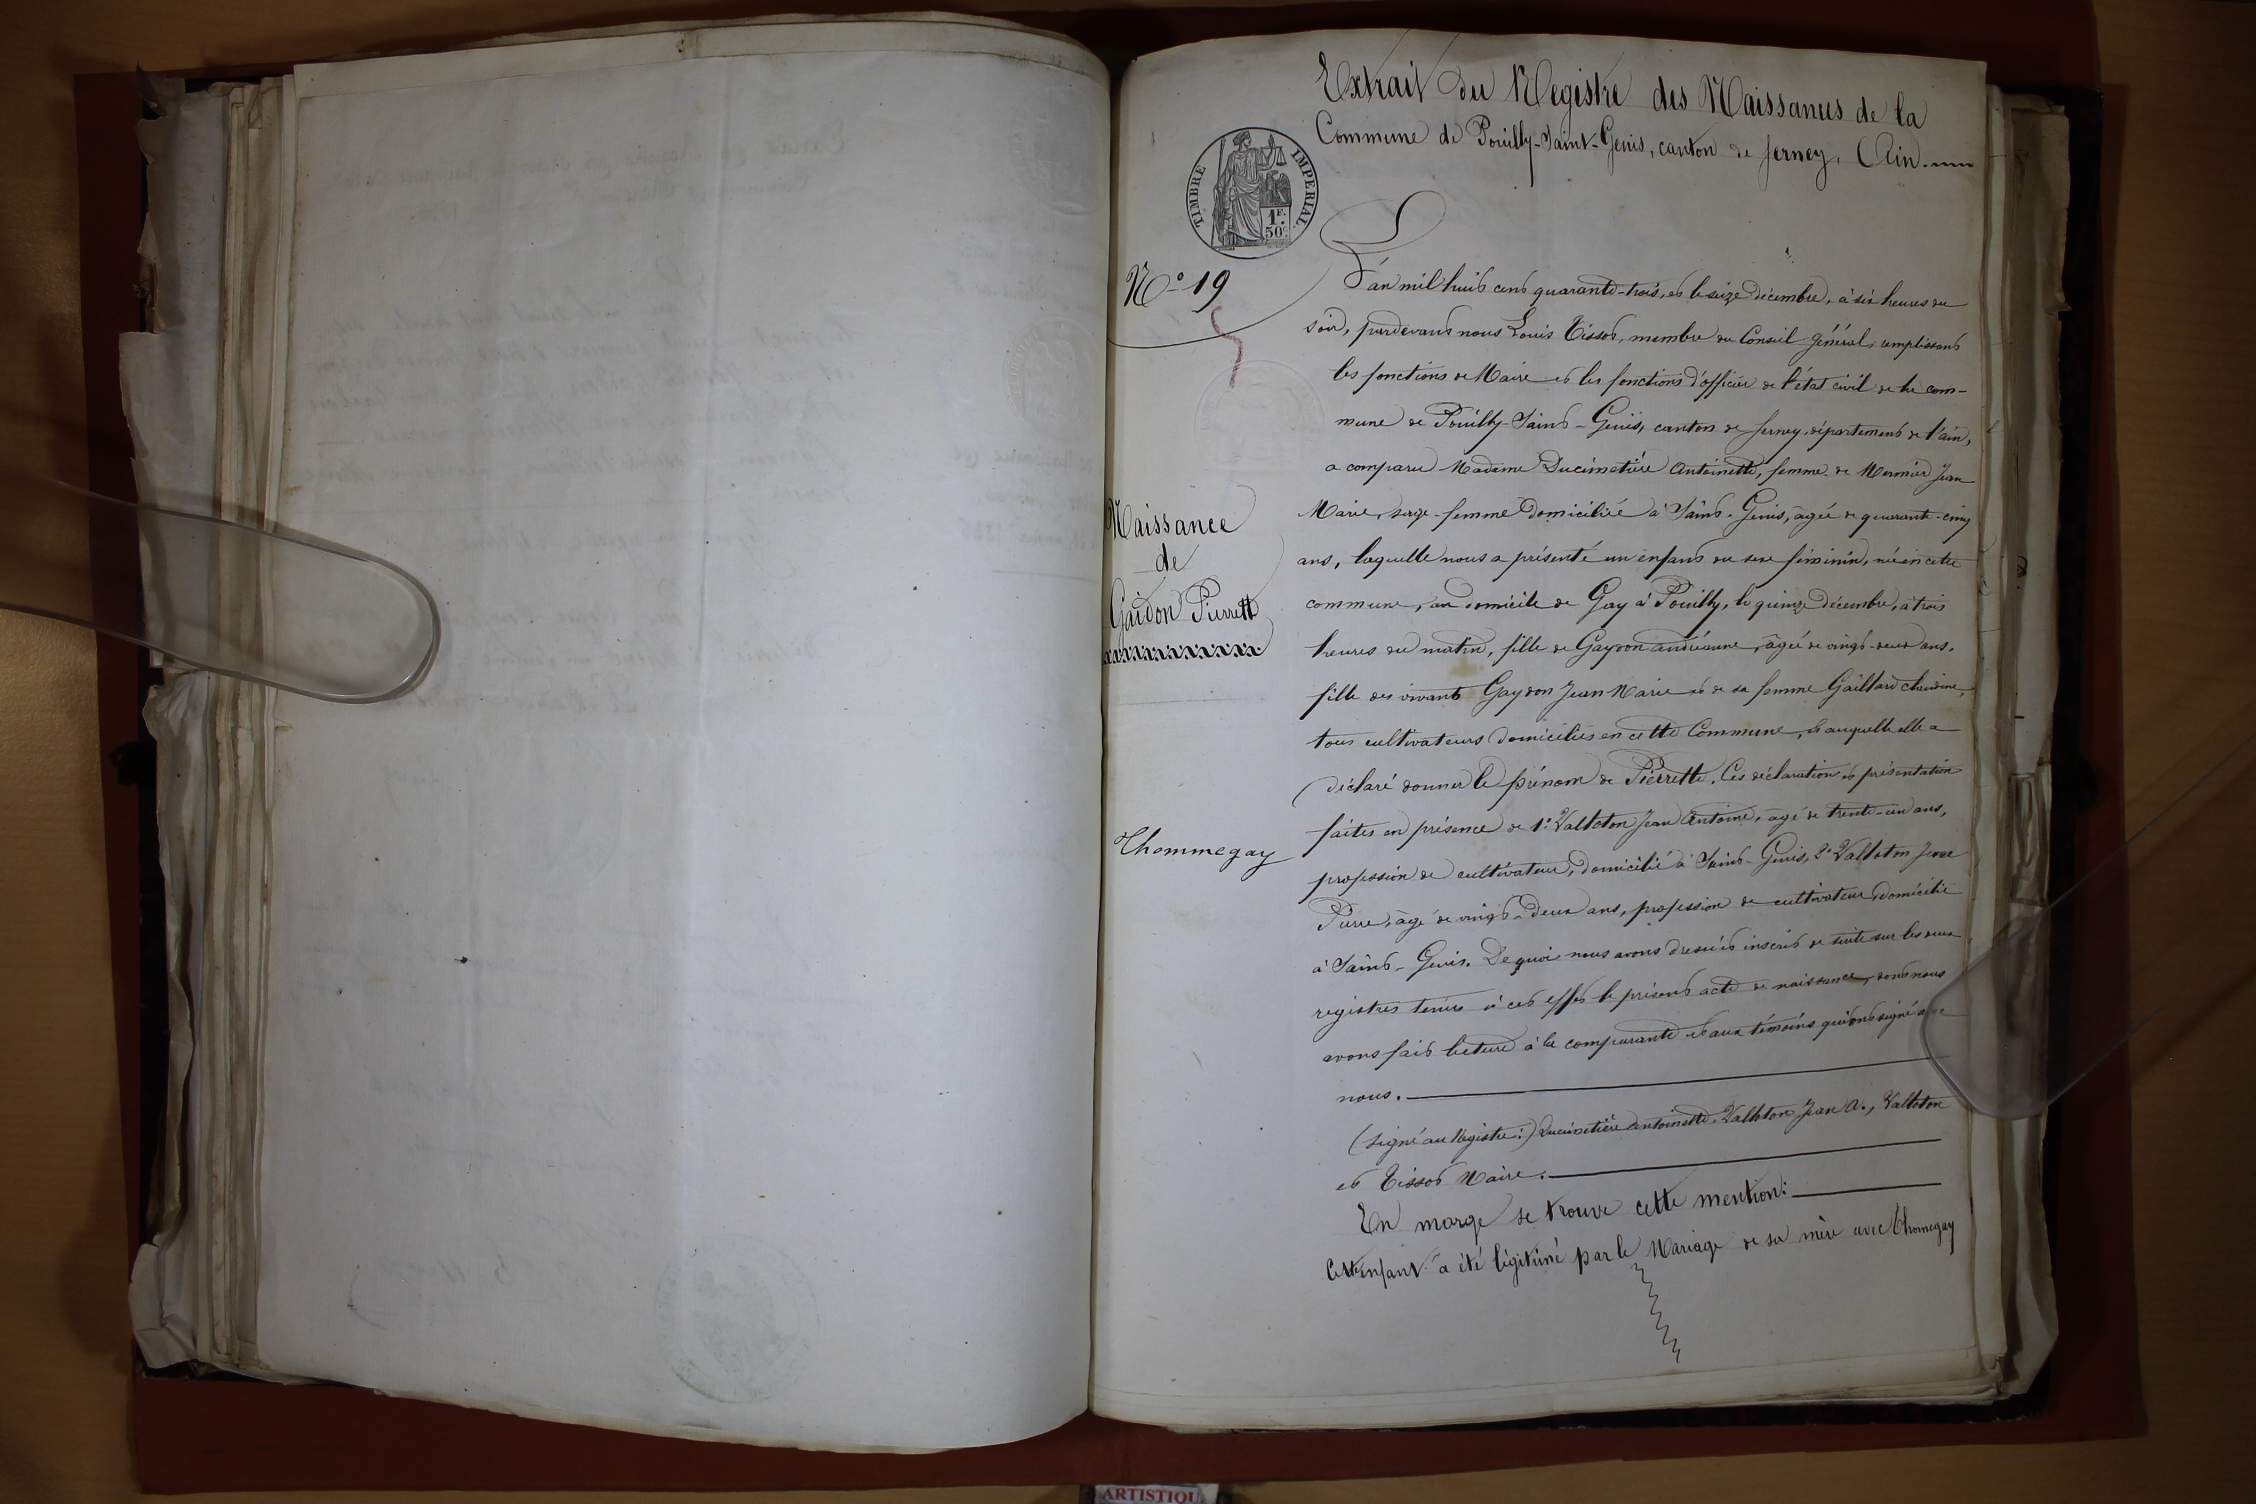 Extrait du Registre des Naissances de la
Commune de Pouilly-Saint-Genis, canton de Ferney, (Ain.
TIMBRE IMPERIAL
1F. 50c.
No 19
L'an mil huit cent quarante-trois, et le seize décembre, à six heures du
soir, pardevant nous Louis Tissot, membre du Conseil général remplissant
les fonctions de Maire et les fonctions d'officier de l'état civil de la com-
mune de Pouilly-Saint-Genis, canton de Ferney, département de l'ain,
a comparu Madame Ducimetière Antoinette, femme de Mermier Jean
Marie, sage-femme domiciliée à Saint-Genis, âgée de quarante-cinq
ans, laquelle nous a présenté un enfant du sexe féminin, né en cette
commune, au domicile de Gay à Pouilly, le quinze décembre, à trois
heures du matin, fille de Gaydon andréanne, âgée de vingt-deux ans,
fille des vivants Gaydon Jean Marie et de sa femme Gaillard claudine,
tous cultivateurs domiciliés en cette Commune, et auquelle elle a
déclaré donner le prénom de Pierrette. Ces déclaration et présentation
faites en présence de 1° Valloton Jean Antoine, âgé de trente-un ans,
profession de cultivateur, domicilié à Saint-Genis, 2° Valloton Jean
Pierre, âgé de vingt-deux ans, profession de cultivateur, domicilié
à Saint-Genis. De quoi nous avons dressé et inscrit de suite sur les deux
registres tenus à cet effet le présent acte de naissance, dont nous
avons fait lecture à la comparante et aux témoins qui ont signé avec
nous.
(signé au Registre:) Ducimetière antoinette, Valloton Jean A., Valloton
et Tissot Maire.
En marge se trouve cette mention:
Cet enfant a été légitimé par le Mariage de sa mère avec Thomegay
Naissance
de
Gaidon Pierrette
Thommegay
ARTISTIQU